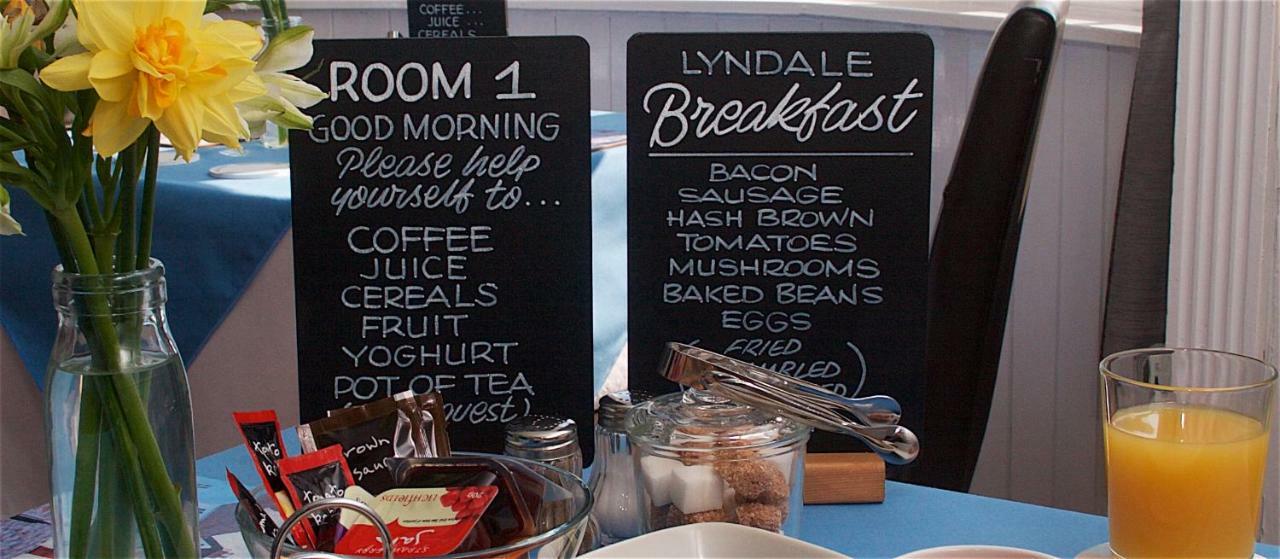 COFFEE...
JUICE ...
CEREALS
ROOM 1
GOOD MORNING
Please help
yourself to...
COFFEE
JUICE
CEREALS
FRUIT
YOGHURT
POT OF TEA
LYNDALE
Breakfast
BACON
SAUSAGE
HASH BROWN
TOMATOES
MUSHROOMS
BAKED BEANS
EGGS
( FRIED
)
LICHFIELDS
STRAWBERRY
Jam